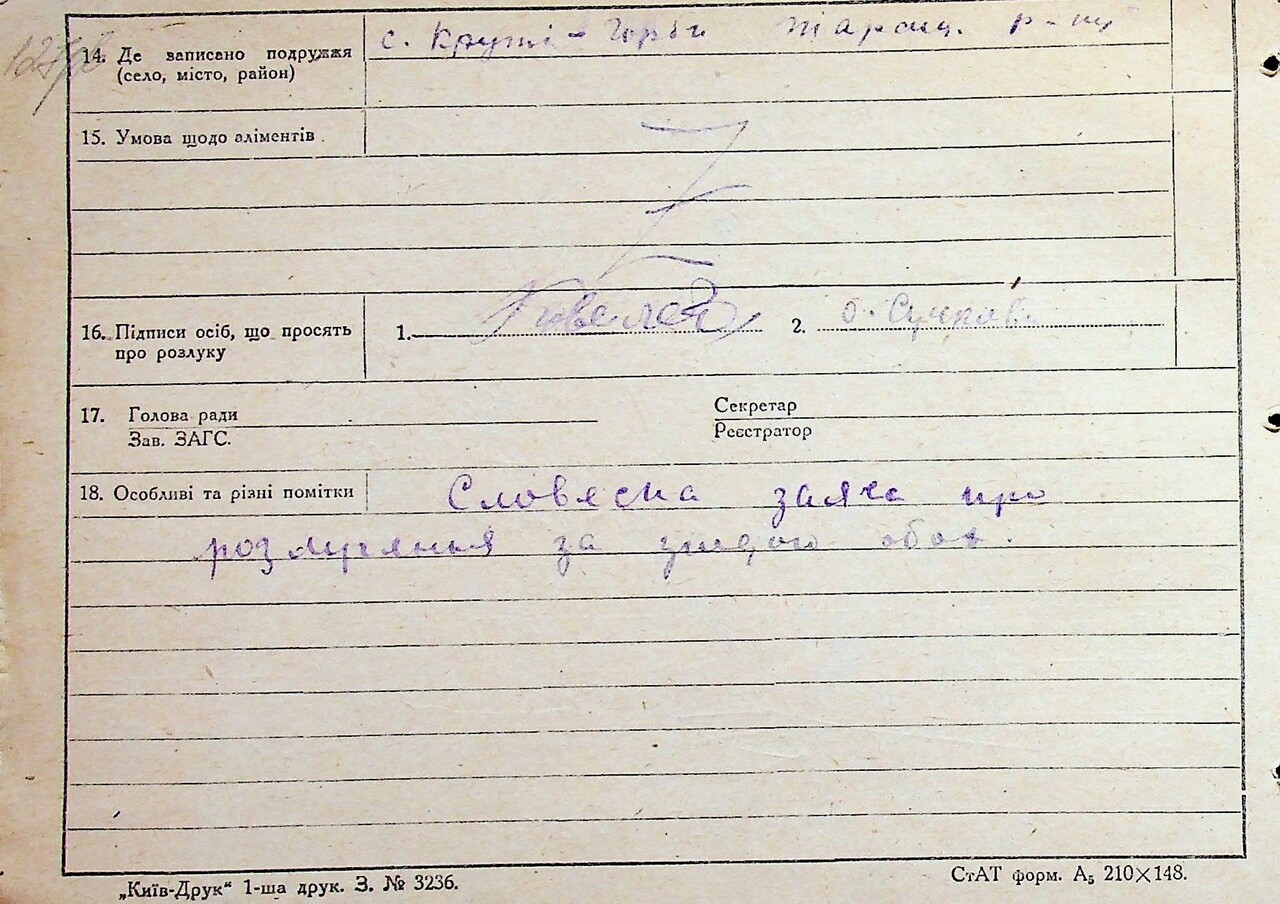 14. Де записано подружжя (село, місто, район) с. Круті-Горби Таращ. р-ну
15. Умова щодо аліментів
16. Підписи осіб, що просять про розлуку 1. 2.
17. Голова ради Секретар
Зав. ЗАГС. Реєстратор
18. Особливі та різні помітки Словесна заява про
розлучення за згодою обох.
„Київ-Друк“ 1-ша друк. З. № 3236. СтАТ форм. А₅ 210×148.